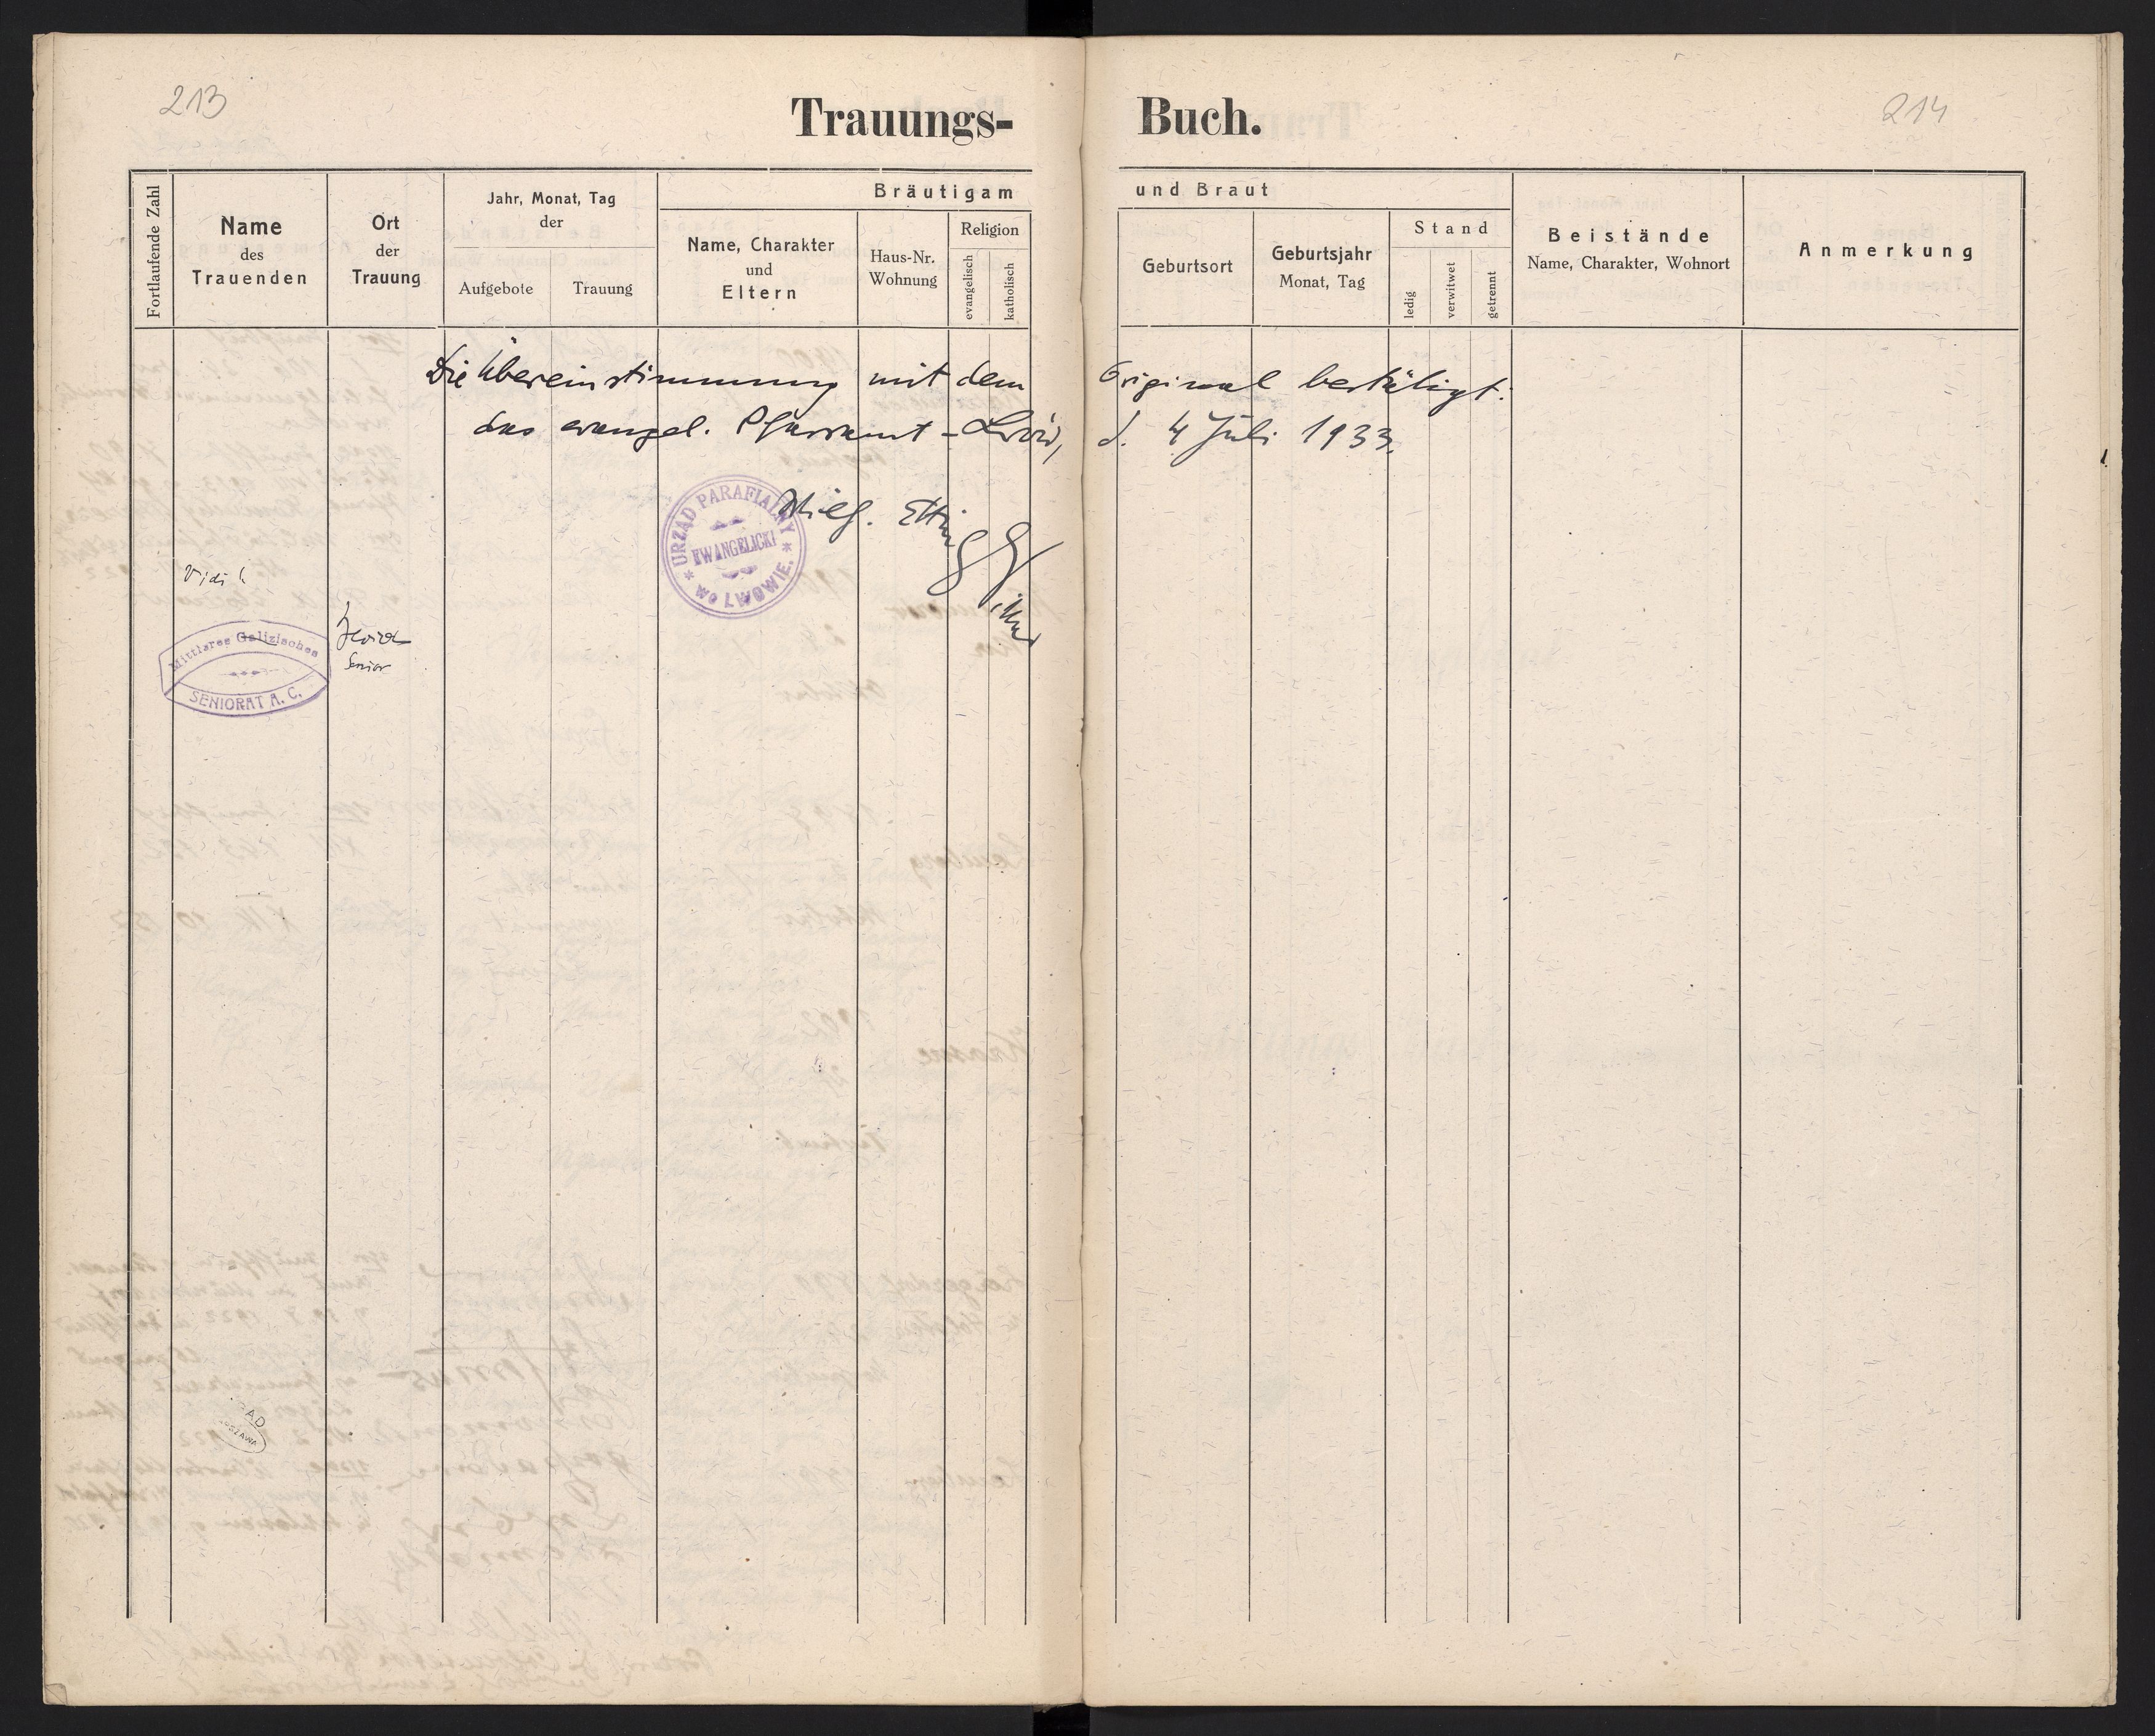 213
214
Trauungs-Buch.
Fortlaufende Zahl
Name
des
Trauenden
Ort
der
Trauung
Jahr, Monat, Tag
der
Aufgebote
Trauung
Bräutigam und Braut
Name, Charakter
und
Eltern
Haus-Nr.
Wohnung
Religion
evangelisch
katholisch
Geburtsort
Geburtsjahr
Monat, Tag
Stand
ledig
verwitwet
getrennt
Beistände
Name, Charakter, Wohnort
Anmerkung
Die Übereinstimmung mit dem Original bestätigt:
das evangel. Pfarramt - Lwów, d. 4 Juli 1933.
URZĄD PARAFIALNY
EWANGELICKI
WO LWOWIE.
Vidi!
Senior
Mittleres Galizisches
SENIORAT A. C.